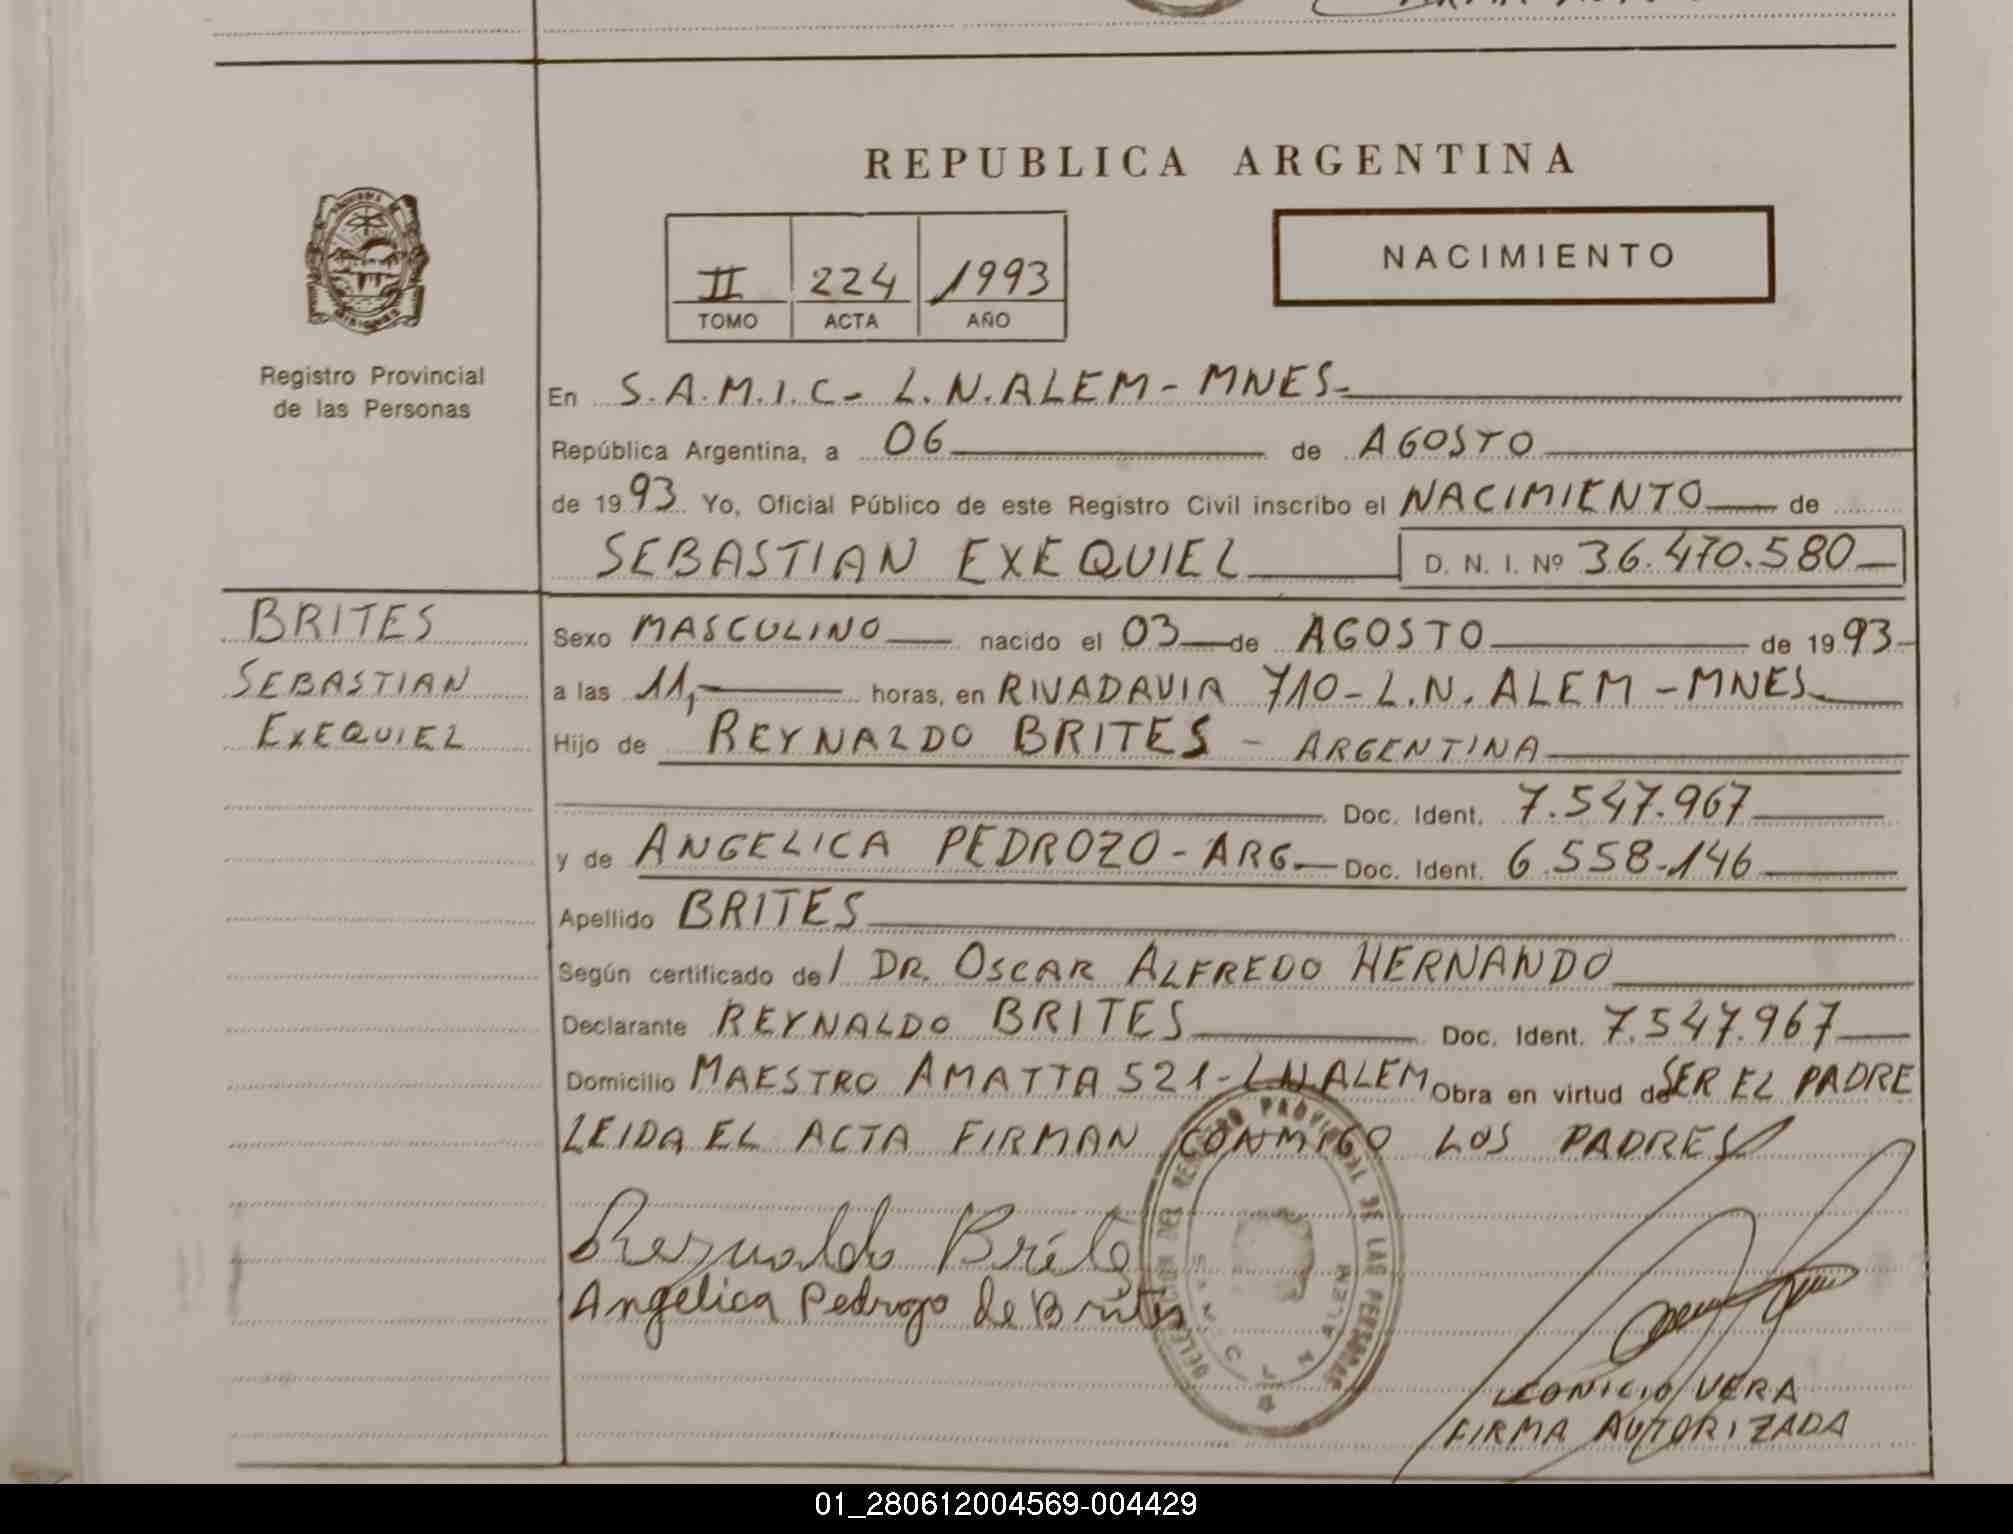 REPUBLICA ARGENTINA
II 224 1993
TOMO ACTA AÑO
NACIMIENTO
Registro Provincial
de las Personas
En S.A.M.I.C - L.N.ALEM - MNES-
República Argentina, a 06 de AGOSTO
de 1993 Yo, Oficial Público de este Registro Civil inscribo el NACIMIENTO de
SEBASTIAN EXEQUIEL D. N. I. Nº 36.470.580
BRITES
SEBASTIAN
EXEQUIEL
Sexo MASCULINO nacido el 03 de AGOSTO de 1993
a las 11, horas, en RIVADAVIA 710 - L.N. ALEM - MNES
Hijo de REYNALDO BRITES - ARGENTINA
Doc. Ident. 7.547.967
y de ANGELICA PEDROZO - ARG Doc. Ident. 6.558.146
Apellido BRITES
Según certificado del DR. OSCAR ALFREDO HERNANDO
Declarante REYNALDO BRITES Doc. Ident. 7.547.967
Domicilio MAESTRO AMATTA 521 - L.N.ALEM Obra en virtud de SER EL PADRE
LEIDA EL ACTA FIRMAN CONMIGO LOS PADRES
Reynaldo Brites
Angelica Pedrozo de Brites
DELEGACION DEL REGISTRO PROVINCIAL DE LAS PERSONAS
L N ALEM
LEONICIO VERA
FIRMA AUTORIZADA
01_280612004569-004429